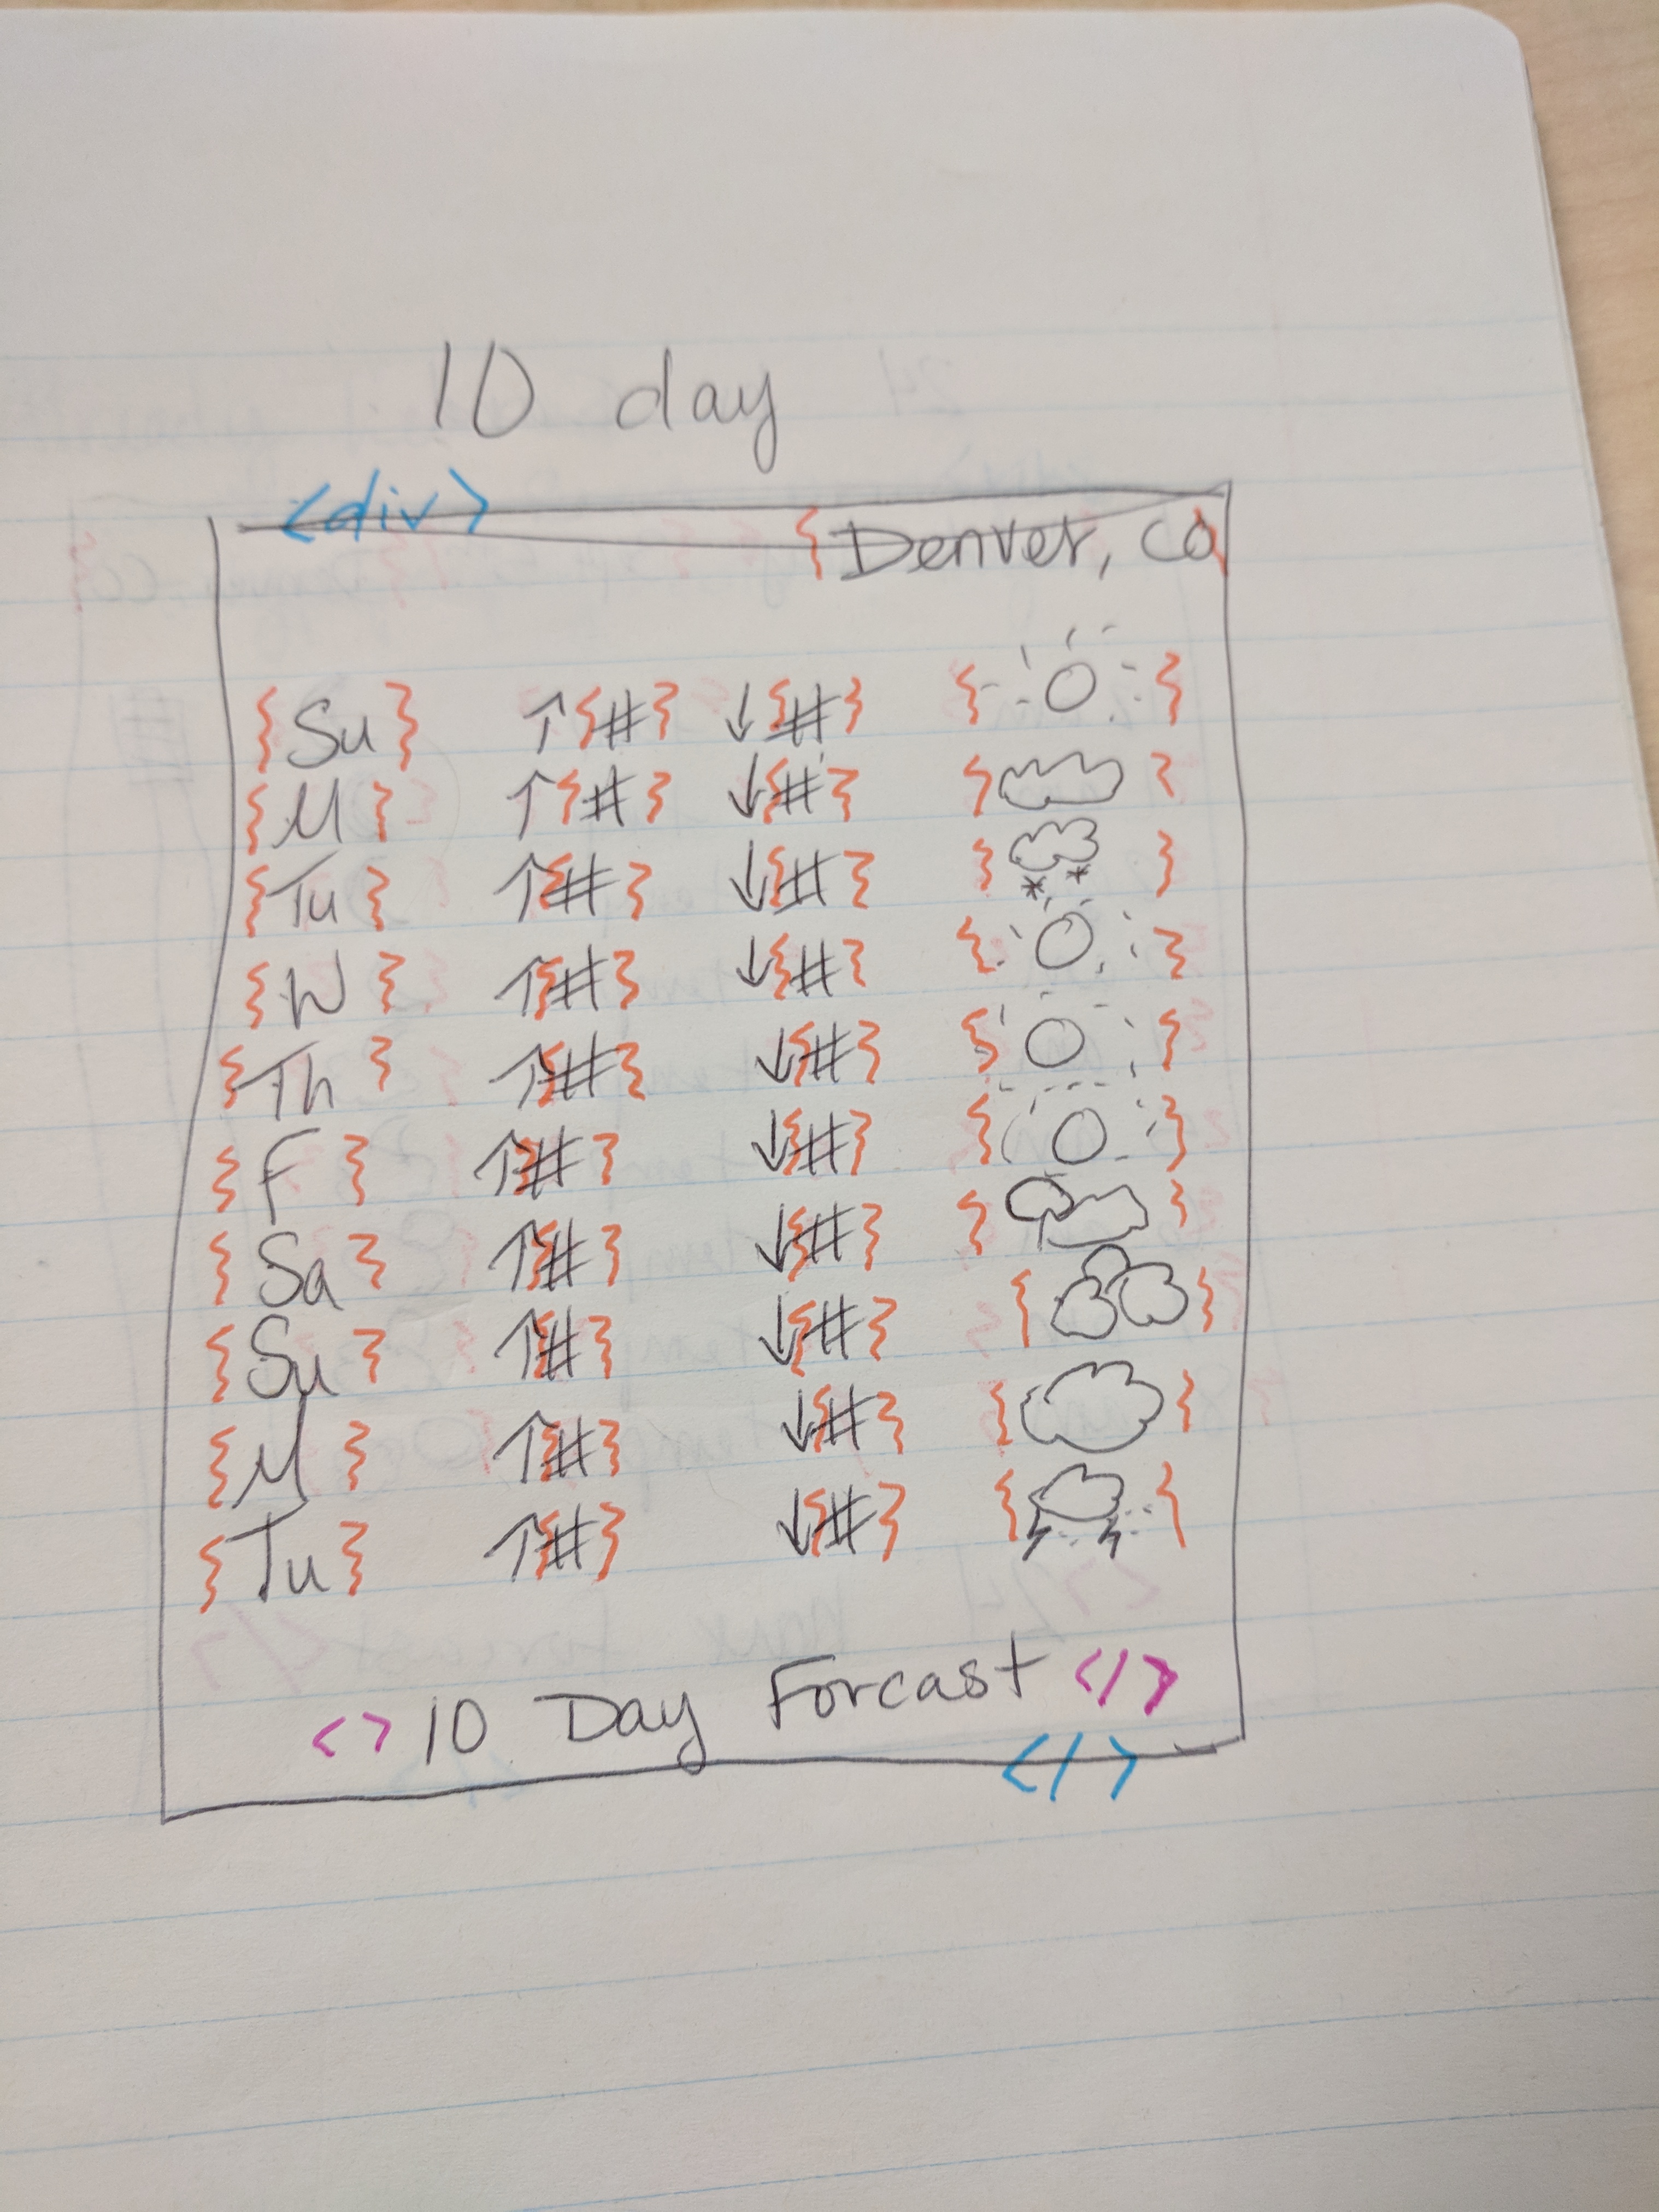 10 day
<div>
{ Denver, CO }
{ Su } ↑ { # } ↓ { # } { }
{ M } ↑ { # } ↓ { # } { }
{ Tu } ↑ { # } ↓ { # } { }
{ W } ↑ { # } ↓ { # } { }
{ Th } ↑ { # } ↓ { # } { }
{ F } ↑ { # } ↓ { # } { }
{ Sa } ↑ { # } ↓ { # } { }
{ Su } ↑ { # } ↓ { # } { }
{ M } ↑ { # } ↓ { # } { }
{ Tu } ↑ { # } ↓ { # } { }
<> 10 Day Forcast </>
</>